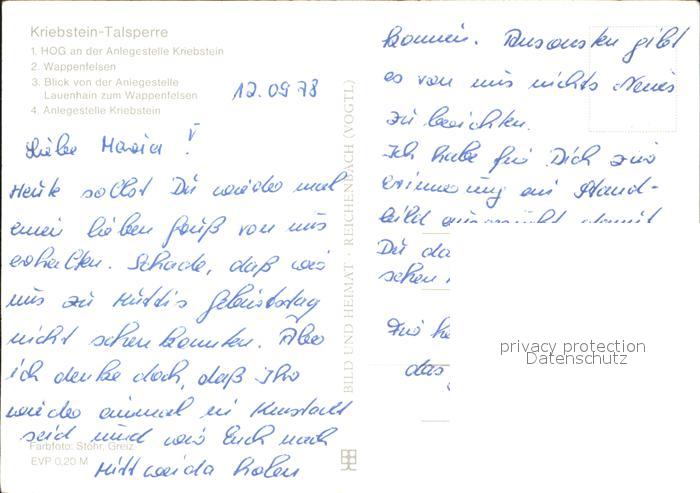 Kriebstein-Talsperre
1. HOG an der Anlegestelle Kriebstein
2. Wappenfelsen
3. Blick von der Anlegestelle
Lauenhain zum Wappenfelsen
4. Anlegestelle Kriebstein
12.09.78
Liebe Maria!
Heute sollst Du wieder mal
einen lieben Gruß von uns
erhalten. Schade, daß wir
uns zu Muttis Geburtstag
nicht sehen konnten. Aber
ich denke doch, daß Ihr
wieder einmal in
seid und wir Euch nach
Mittweida holen
Farbfoto: Stöhr, Greiz
EVP 0,20 M
BILD UND HEIMAT · REICHENBACH (VOGTL)
können. Ansonsten gibt
es von uns nichts Neues
zu berichten.
Ich habe für Dich zur
Erinnerung ein Stand-
bild damit
Du da
sehen
Für he
das
privacy protection
Datenschutz